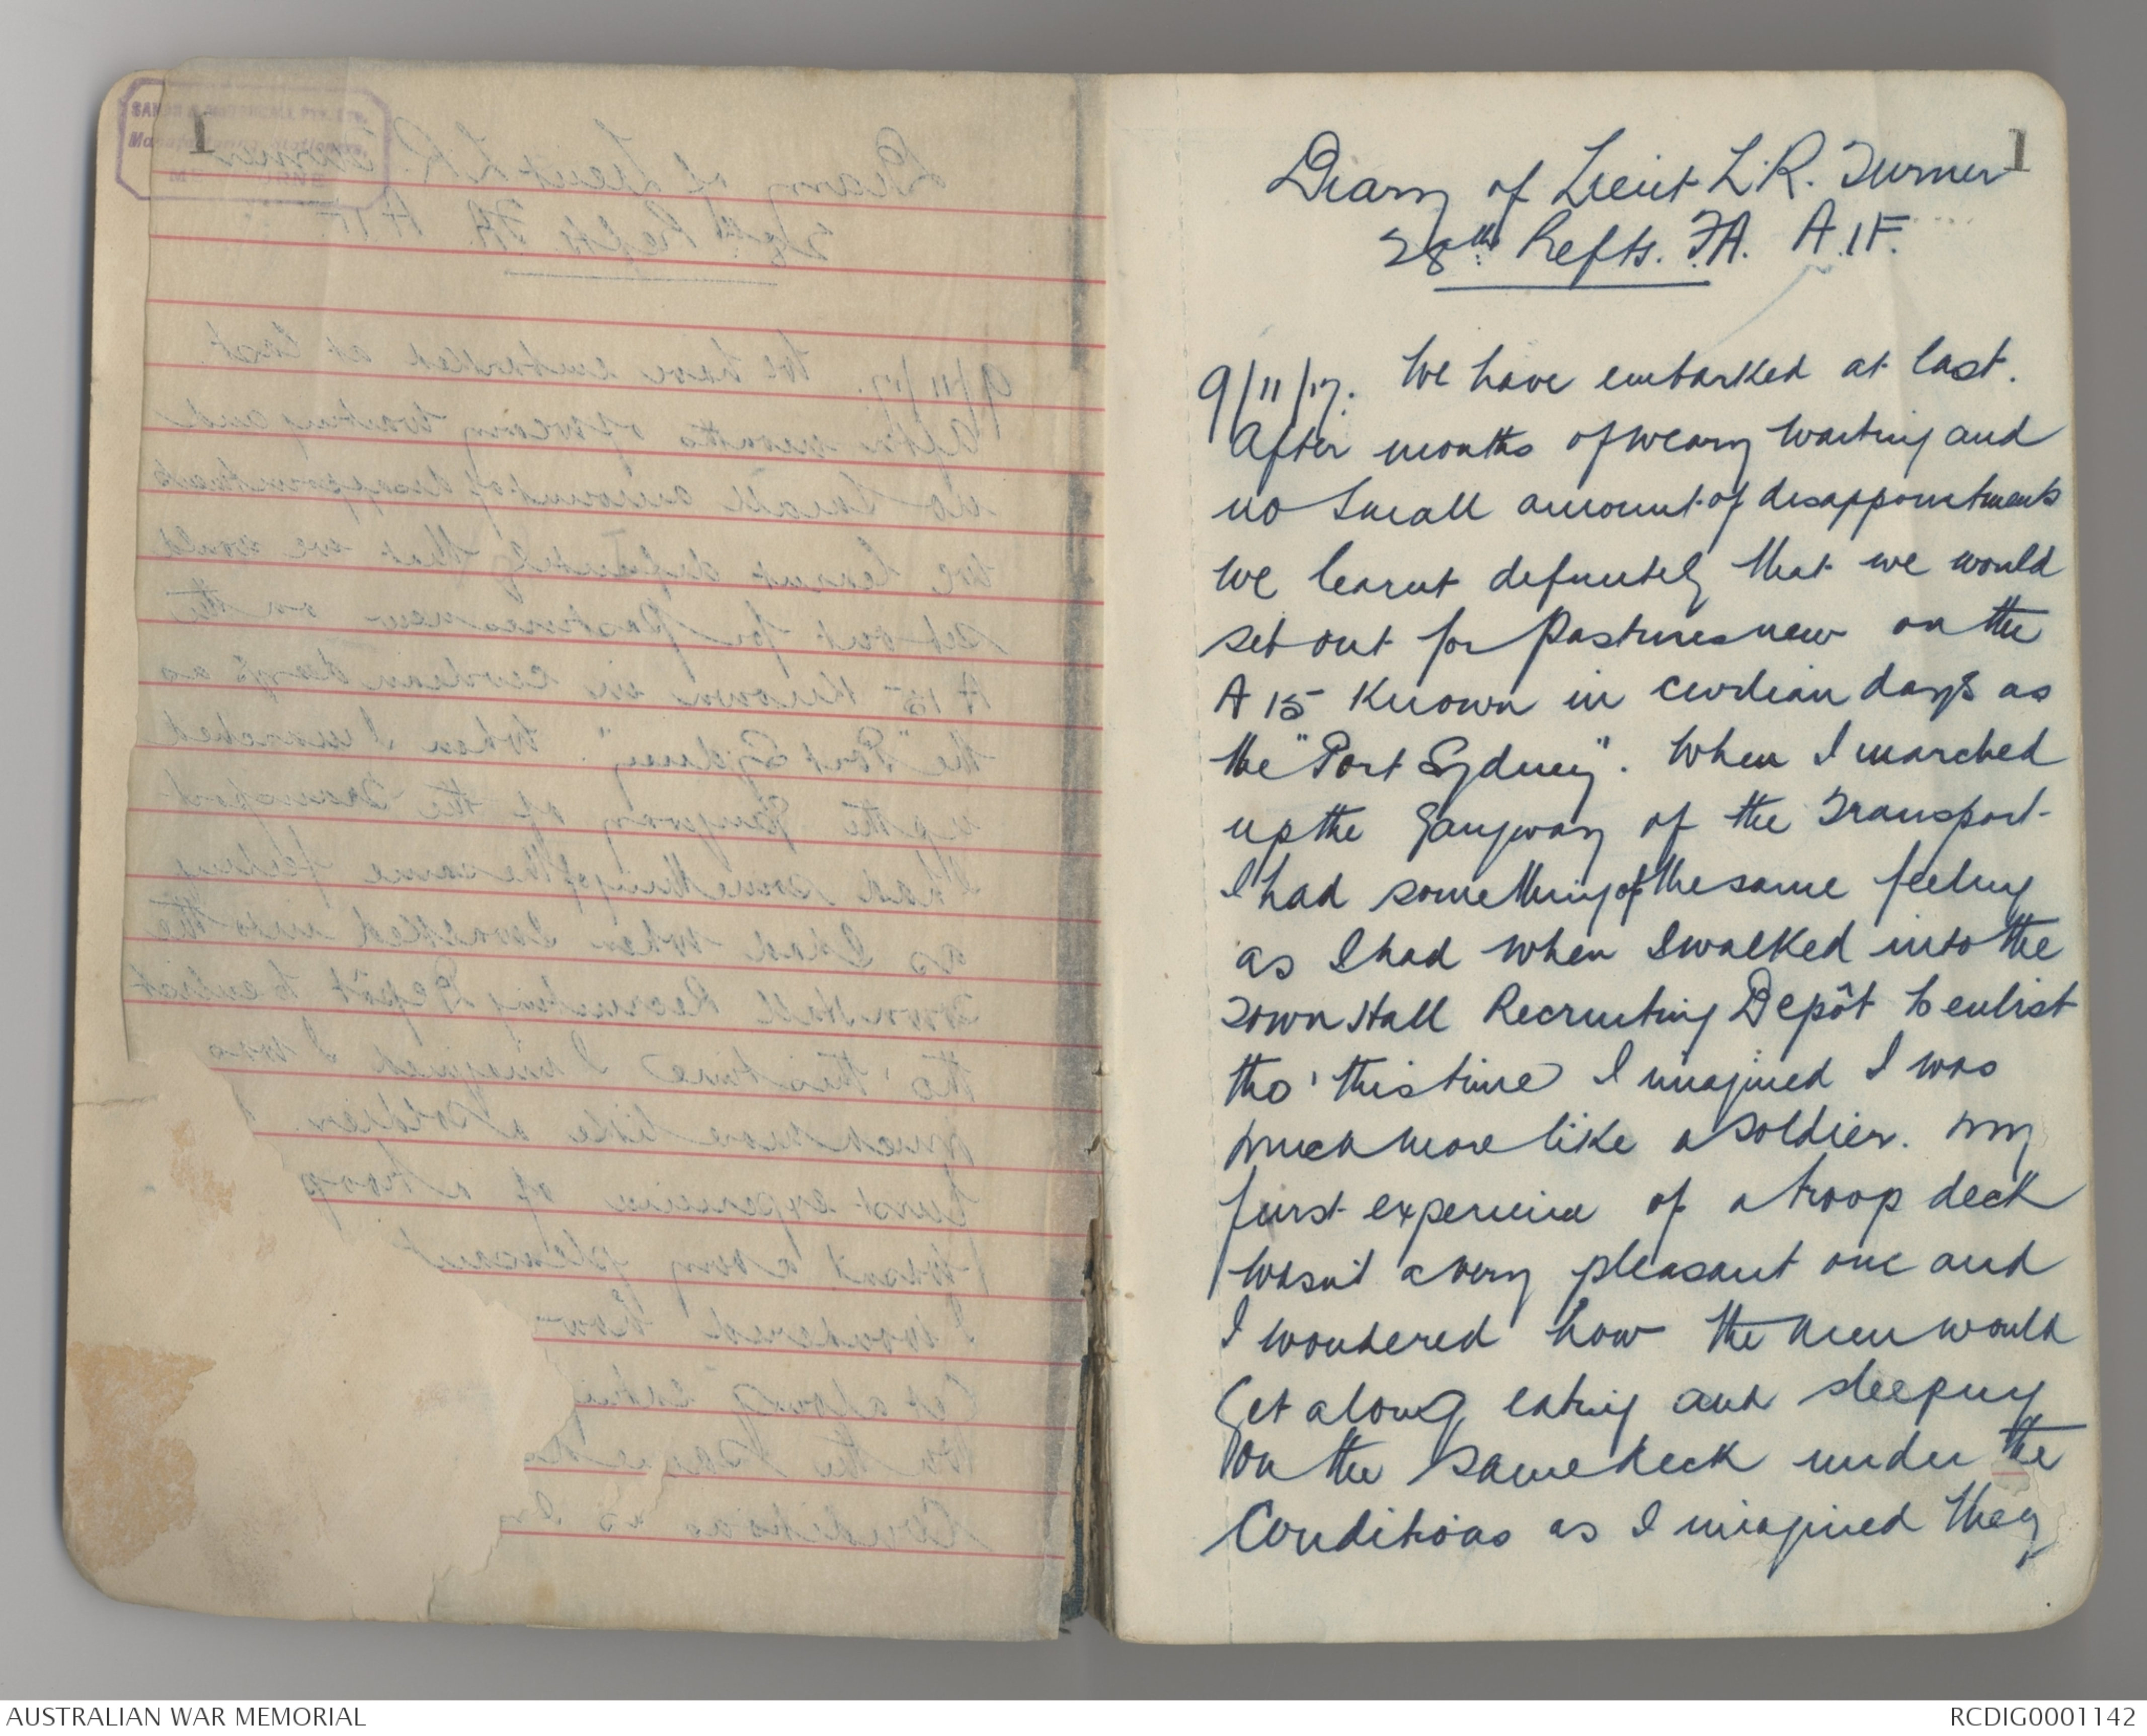 1
Diary of Lieut L.R. Turner
28th Refts. F.A. A.I.F.
9/11/17. We have embarked at last.
After months of weary waiting and
no small amount of disappointments
we learnt definitely that we would
set out for Pastures new on the
A 15 known in civilian days as
the "Port Sydney". When I marched
up the gangway of the Transport
I had something of the same feeling
as I had when I walked into the
Town Hall Recruiting Depôt to enlist
tho' this time I imagined I was
much more like a soldier. My
first experience of a troop deck
wasn't a very pleasant one and
I wondered how the men would
get along eating and sleeping
on the same deck under the
Conditions as I imagined they
1
AUSTRALIAN WAR MEMORIAL
RCDIG0001142